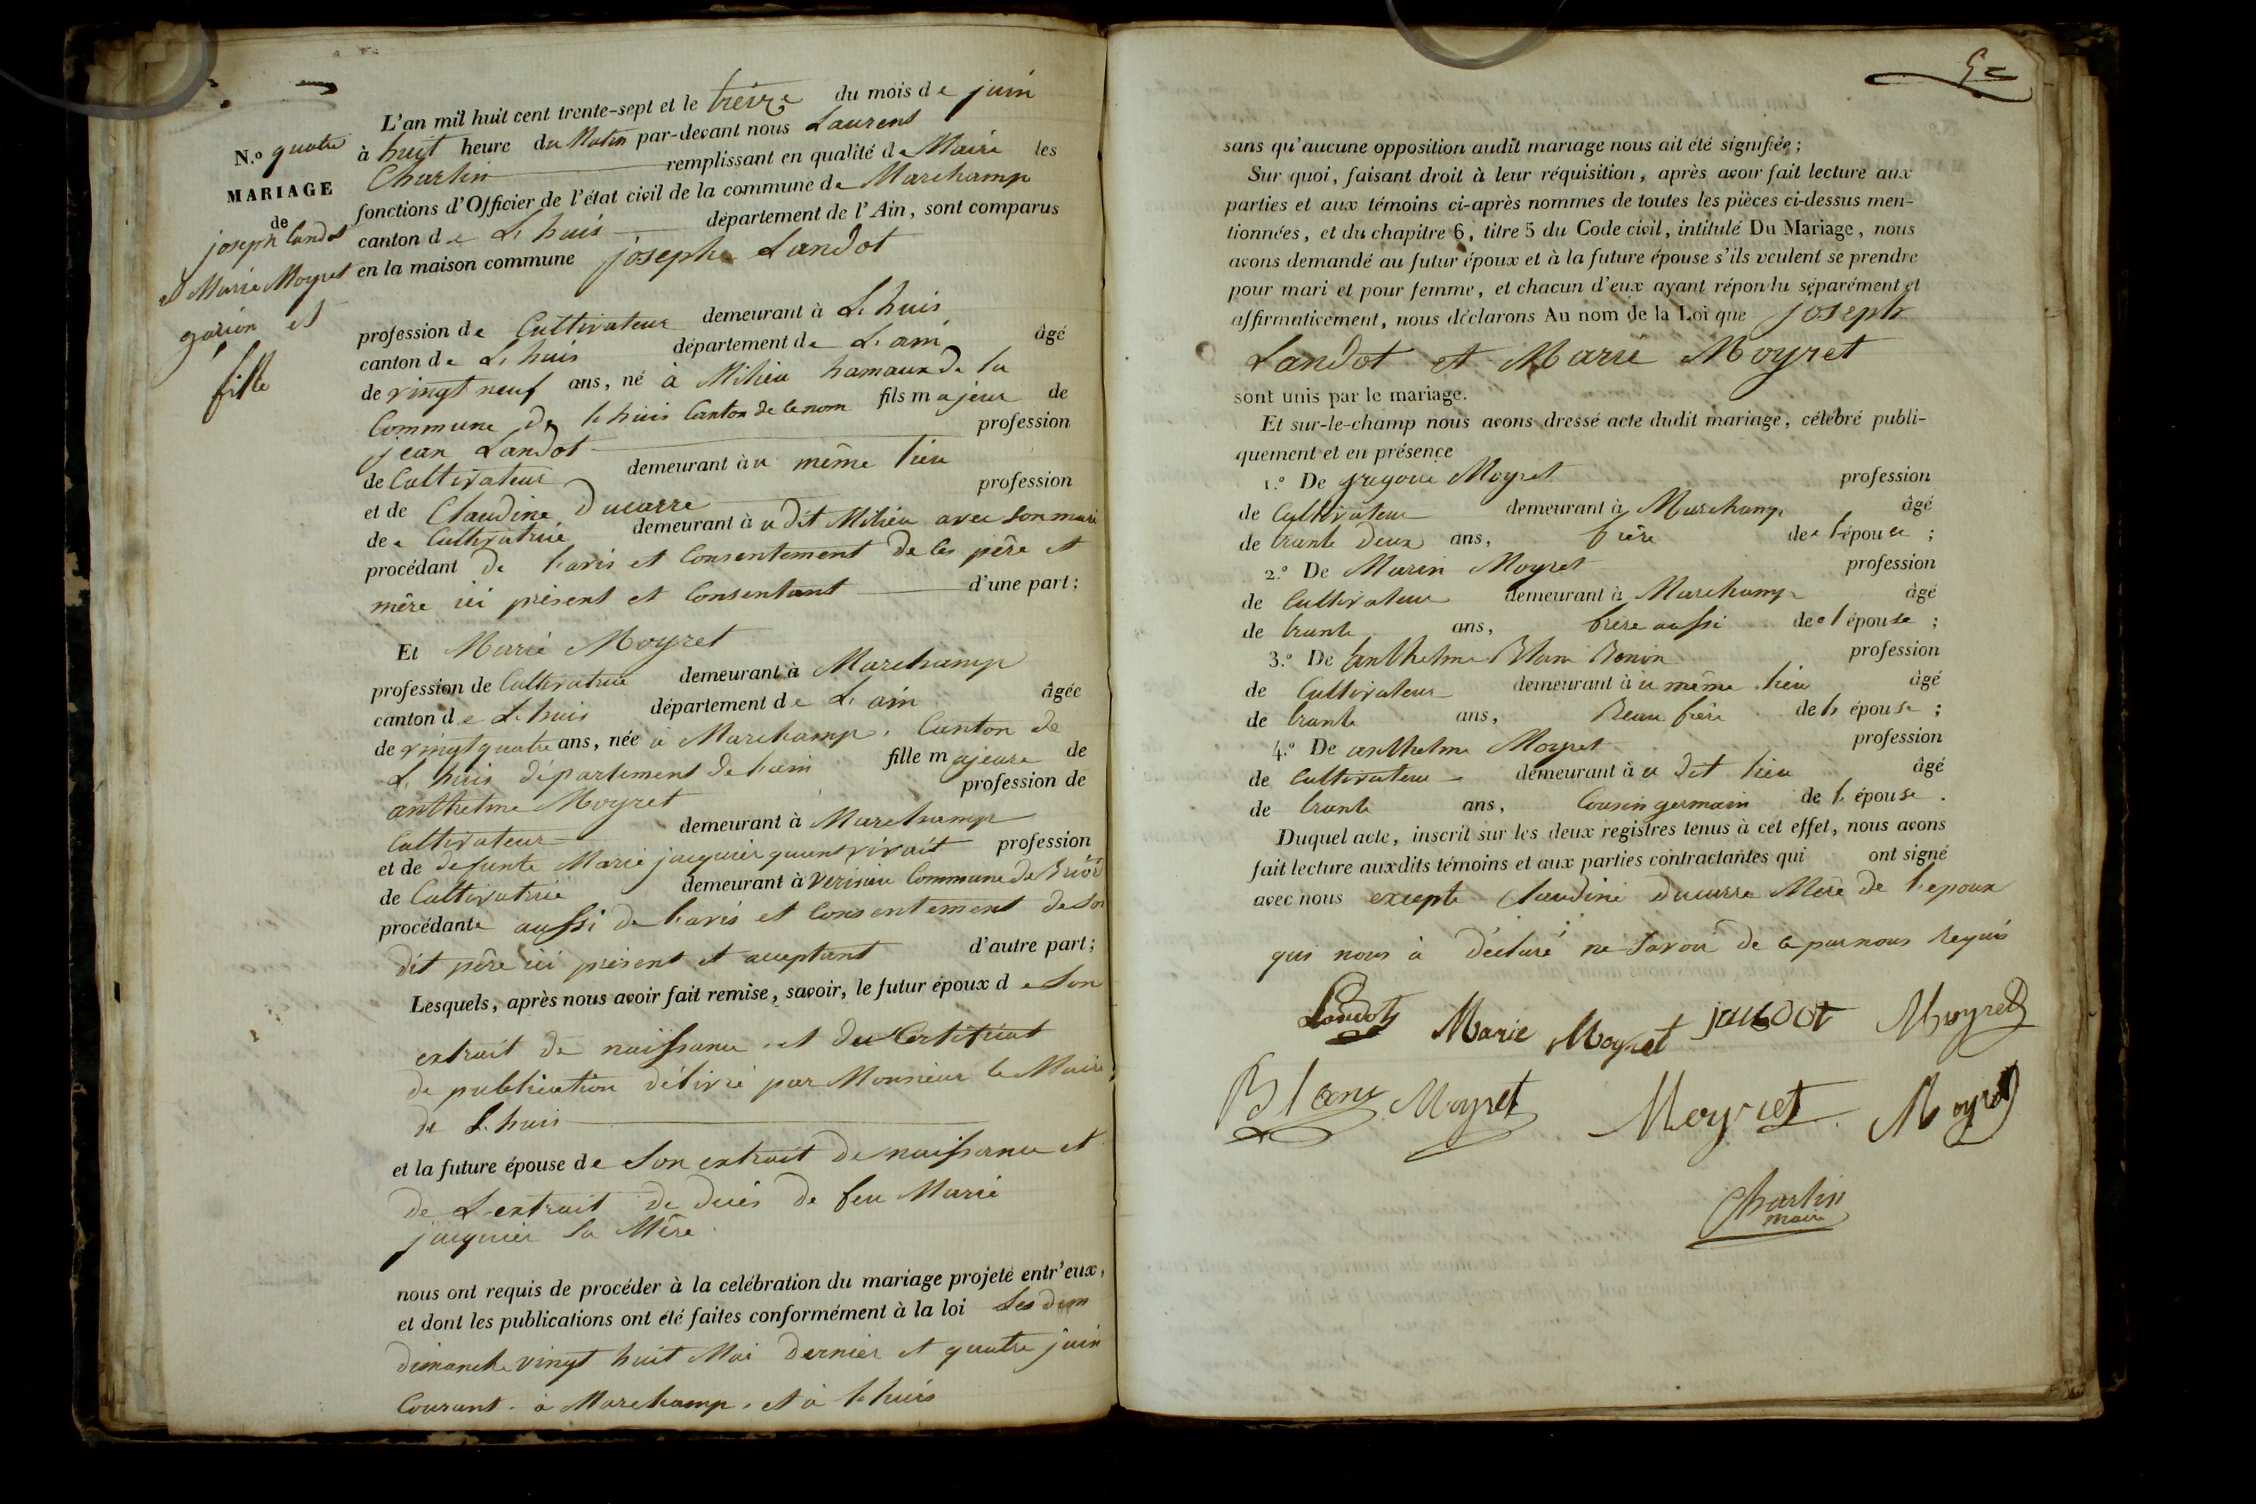 N.º quatre
MARIAGE
de
joseph Landot
et Marie Moyret
garion et
fille
L'an mil huit cent trente-sept et le treize du mois de juin
à huit heure du Matin par-devant nous Laurent
Charlin remplissant en qualité de Maire les
fonctions d'Officier de l'état civil de la commune de Marchamp
canton de L huis département de l'Ain, sont comparus
en la maison commune joseph Landot
profession de Cultivateur demeurant à L huis
canton de L huis département de L ain âgé
de vingt neuf ans, né à Milieu hamaux de la
Commune de l huis Canton de ce nom fils majeur de
jean Landot profession
de Cultivateur demeurant au même lieu
et de Claudine Ducarre profession
de Cultivatrice demeurant à u dit Milieu avec son mari
procédant de l'avis et Consentement de ces père et
mère ici présent et Consentant d'une part;
Et Marie Moyret
profession de Cultivatrice demeurant à Marchamp
canton de L huis département de L ain âgée
de vingt quatre ans, née à Marchamp, Canton de
L huis département de l'ain fille majeure de
anthelme Moyret profession de
Cultivateur demeurant à Marchamp
et de defunte Marie jacquier quant vivait profession
de Cultivatrice demeurant à Verizieu Commune de Briord
procédante aussi de l'avis et Consentement de son
dit père ici présent et acceptant d'autre part;
Lesquels, après nous avoir fait remise, savoir, le futur époux de Son
extrait de naissance et du Certificat
de publication délivré par Monsieur le Maire
de L. huis
et la future épouse de Son extrait de naissance et
de L extrait de décès de feu Marie
jacquier Sa Mère
nous ont requis de procéder à la célébration du mariage projeté entr'eux,
et dont les publications ont été faites conformément à la loi Les dim
dimanche vingt huit Mai dernier et quatre juin
Courant à Marchamp, et à l huis
sans qu'aucune opposition audit mariage nous ait été signifiée;
Sur quoi, faisant droit à leur réquisition, après avoir fait lecture aux
parties et aux témoins ci-après nommes de toutes les pièces ci-dessus men-
tionnées, et du chapitre 6, titre 5 du Code civil, intitulé Du Mariage, nous
avons demandé au futur époux et à la future épouse s'ils veulent se prendre
pour mari et pour femme, et chacun d'eux ayant répondu séparément et
affirmativement, nous déclarons Au nom de la Loi que Joseph
Landot et Marie Moyret
sont unis par le mariage.
Et sur-le-champ nous avons dressé acte dudit mariage, célébré publi-
quement et en présence
1.º De gregoire Moyret profession
de Cultivateur demeurant à Marchamp âgé
de trante deux ans, frère de l'épouse;
2.º De Marin Moyret profession
de Cultivateur demeurant à Marchamp âgé
de trante ans, frère aussi de l'épouse;
3.º De anthelme Blanc Bonin profession
de Cultivateur demeurant à u même lieu âgé
de trante ans, Beau frère de l'épouse;
4.º De anthelme Moyret profession
de Cultivateur demeurant à u dit lieu âgé
de trante ans, Cousin germain de l'épouse.
Duquel acte, inscrit sur les deux registres tenus à cet effet, nous avons
fait lecture auxdits témoins et aux parties contractantes qui ont signé
avec nous excepté Claudine Ducarre Mère de l'epoux
qui nous à déclaré ne savoir de ce par nous requis
Landot Marie Moyret jandot Moyret
Blanc Moyret Moyret Moyret
Charlin
maire